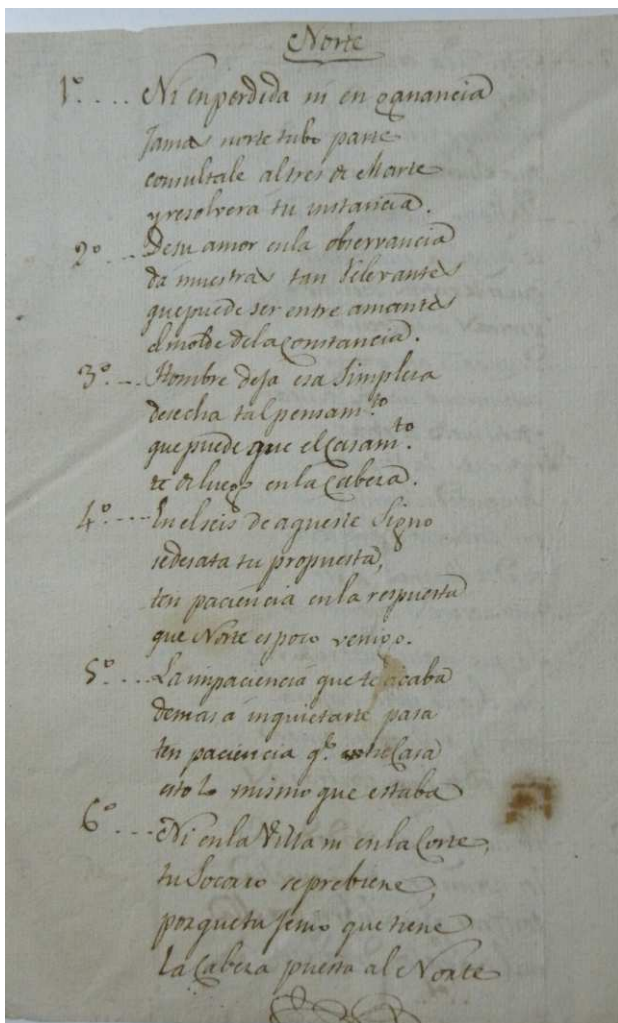 Norte
1º.... Ni en perdida ni en ganancia
Jamas norte tubo parte
consultale al tres de Marte
y resolvera tu instancia.
2º... De su amor en la observancia
da muestras tan relevantes
que puede ser entre amantes
el molde de la constancia.
3º... Hombre deja esa simpleza
desecha tal pensamto.
que puede que el casamto.
te de luego en la Cabeza.
4º.... En el seis de aqueste Signo
se desata tu propuesta,
ten paciencia en la respuesta
que Norte es poco venigno.
5º.... La impaciencia que te acaba
demas a inquietarte pasa
ten paciencia qe. en tu Casa
esto lo mismo que estaba
6º.... Ni en la Villa ni en la Corte,
tu Socorro se prebiene,
porque tu Jenio que tiene
La Cabeza puesta al Norte